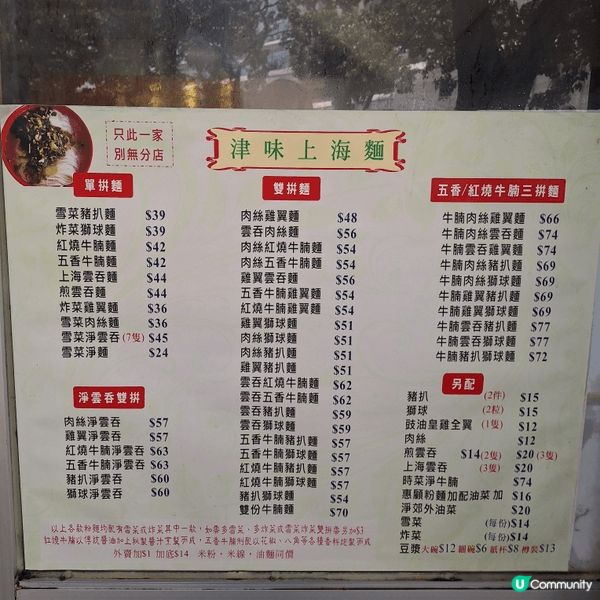 只此一家
別無分店
津味上海麵
單拼麵
雪菜豬扒麵 $39
炸菜獅球麵 $39
紅燒牛腩麵 $42
五香牛腩麵 $42
上海雲吞麵 $44
煎雲吞麵 $44
炸菜雞翼麵 $36
雪菜肉絲麵 $36
雪菜淨雲吞 (7隻) $45
雪菜淨麵 $24
淨雲吞雙拼
肉絲淨雲吞 $57
雞翼淨雲吞 $57
紅燒牛腩淨雲吞 $63
五香牛腩淨雲吞 $63
豬扒淨雲吞 $60
獅球淨雲吞 $60
雙拼麵
肉絲雞翼麵 $48
雲吞肉絲麵 $56
肉絲紅燒牛腩麵 $54
肉絲五香牛腩麵 $54
雞翼雲吞麵 $56
五香牛腩雞翼麵 $54
紅燒牛腩雞翼麵 $54
雞翼獅球麵 $51
肉絲獅球麵 $51
肉絲豬扒麵 $51
雞翼豬扒麵 $51
雲吞紅燒牛腩麵 $62
雲吞五香牛腩麵 $62
雲吞豬扒麵 $59
雲吞獅球麵 $59
五香牛腩豬扒麵 $57
五香牛腩獅球麵 $57
紅燒牛腩豬扒麵 $57
紅燒牛腩獅球麵 $57
豬扒獅球麵 $54
雙份牛腩麵 $70
五香/紅燒牛腩三拼麵
牛腩肉絲雞翼麵 $66
牛腩肉絲雲吞麵 $74
牛腩雲吞雞翼麵 $74
牛腩肉絲豬扒麵 $69
牛腩肉絲獅球麵 $69
牛腩雞翼豬扒麵 $69
牛腩雞翼獅球麵 $69
牛腩雲吞豬扒麵 $77
牛腩雲吞獅球麵 $77
牛腩豬扒獅球麵 $72
另配
豬扒 (2件) $15
獅球 (2粒) $15
豉油皇雞全翼 (1隻) $12
肉絲 $12
煎雲吞 $14(2隻) $20(3隻)
上海雲吞 (3隻) $20
時菜淨牛腩 $74
惠顧粉麵加配油菜 加 $16
淨郊外油菜 $20
雪菜 (每份)$14
炸菜 (每份)$14
豆漿 大碗$12 細碗$6 紙杯$8 樽裝$13
以上各款粉麵均配有雪菜或炸菜其中一款，如要多雪菜、多炸菜或雪菜炸菜雙拼要另加$3
外賣加$1 加底$14 米粉，米線，油麵同價
U Community